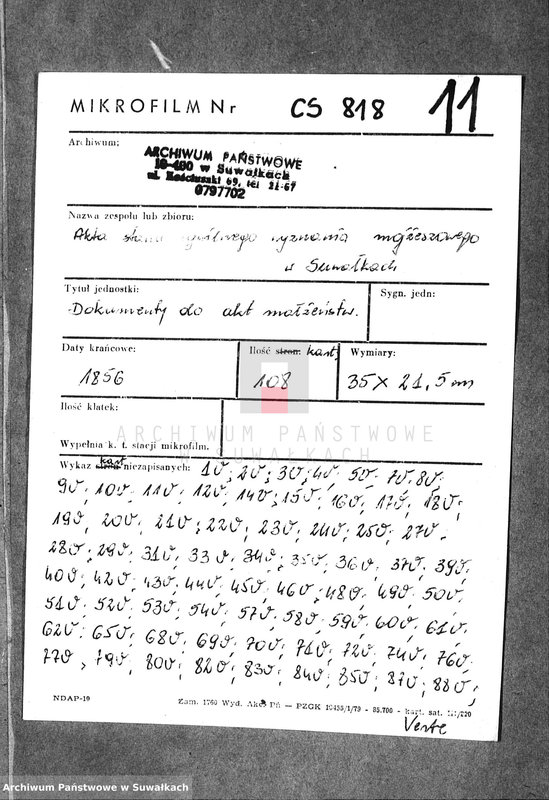 MIKROFILM Nr CS 818 11
Archiwum:
ARCHIWUM PAŃSTWOWE
16-400 w Suwałkach
ul. Kościuszki 69, tel 21-67
0797702
Nazwa zespołu lub zbioru:
Akta stanu cywilnego wyznania mojżeszowego
w Suwałkach
Tytuł jednostki:
Dokumenty do akt małżeństw.
Sygn. jedn:
Daty krańcowe:
1856
Ilość stron: kart
108
Wymiary:
35 x 21,5 cm
Ilość klatek:
ARCHIWUM PAŃSTWOWE
W SUWAŁKACH
Wypełnia k. t. stacji mikrofilm.
Wykaz stron kart niezapisanych: 1v; 2v; 3v; 4v; 5v; 7v; 8v;
9v; 10v; 11v; 12v; 14v; 15v; 16v; 17v; 18v;
19v; 20v; 21v; 22v; 23v; 24v; 25v; 27v.
28v; 29v; 31v; 33v; 34v; 35v; 36v; 37v; 39v;
40v; 42v; 43v; 44v; 45v; 46v; 48v; 49v; 50v;
51v; 52v; 53v; 54v; 57v; 58v; 59v; 60v; 61v;
62v; 65v; 68v; 69v; 70v; 71v; 72v; 74v; 76v;
77v, 79v; 80v; 82v; 83v; 84v; 85v; 87v; 88v;
NDAP-19
Zam. 1760 Wyd. Akc. Pń — PZGK
Verte
Archiwum Państwowe w Suwałkach